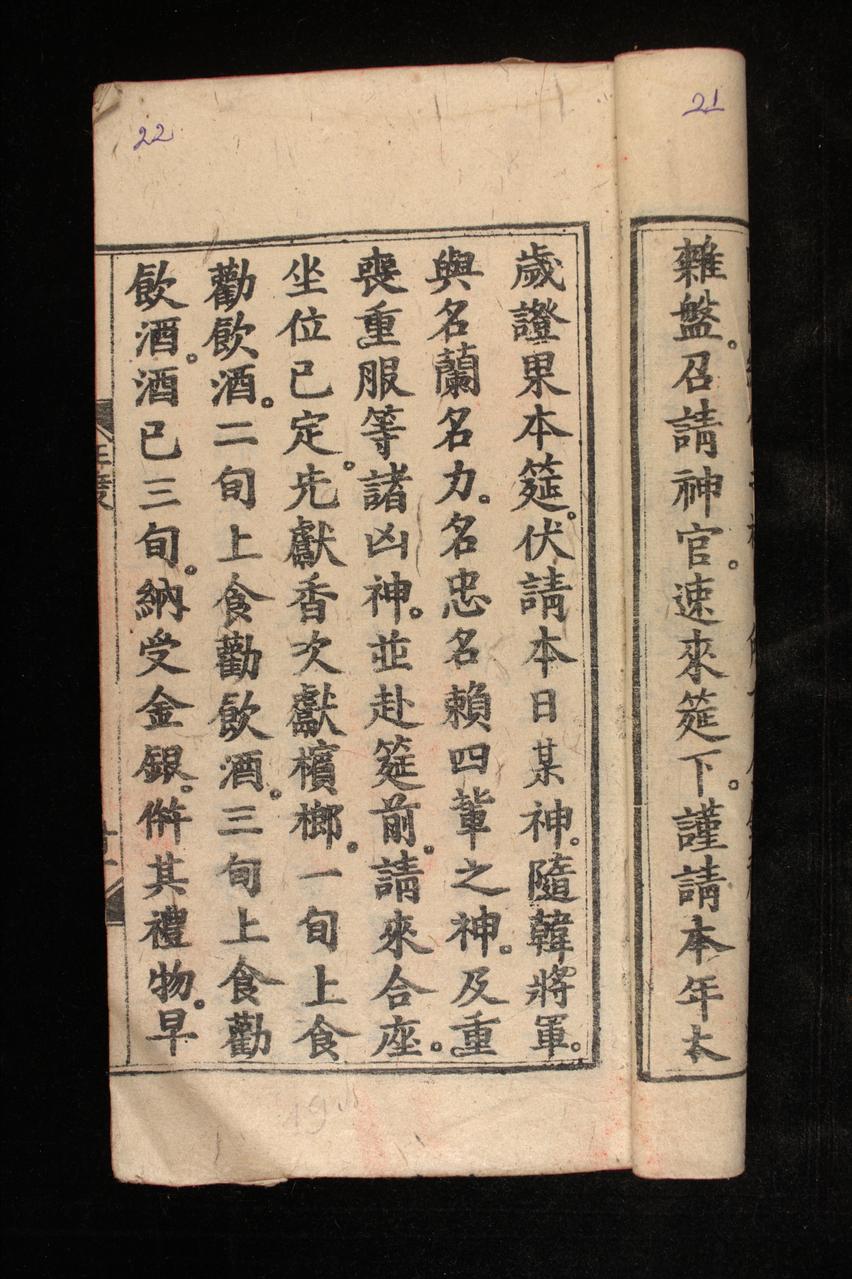 21
雜盤。召請神官。速來筵下。謹請本年本
22
歲證果本筵。伏請本日某神。隨韓將軍。
與名蘭名力。名忠名賴四輩之神。及重
喪重服等諸凶神。並赴筵前。請來合座。
坐位已定。先獻香次獻檳榔。一旬上食
勸飲酒。二旬上食勸飲酒。三旬上食勸
飲酒。酒已三旬。納受金銀。併其禮物。早